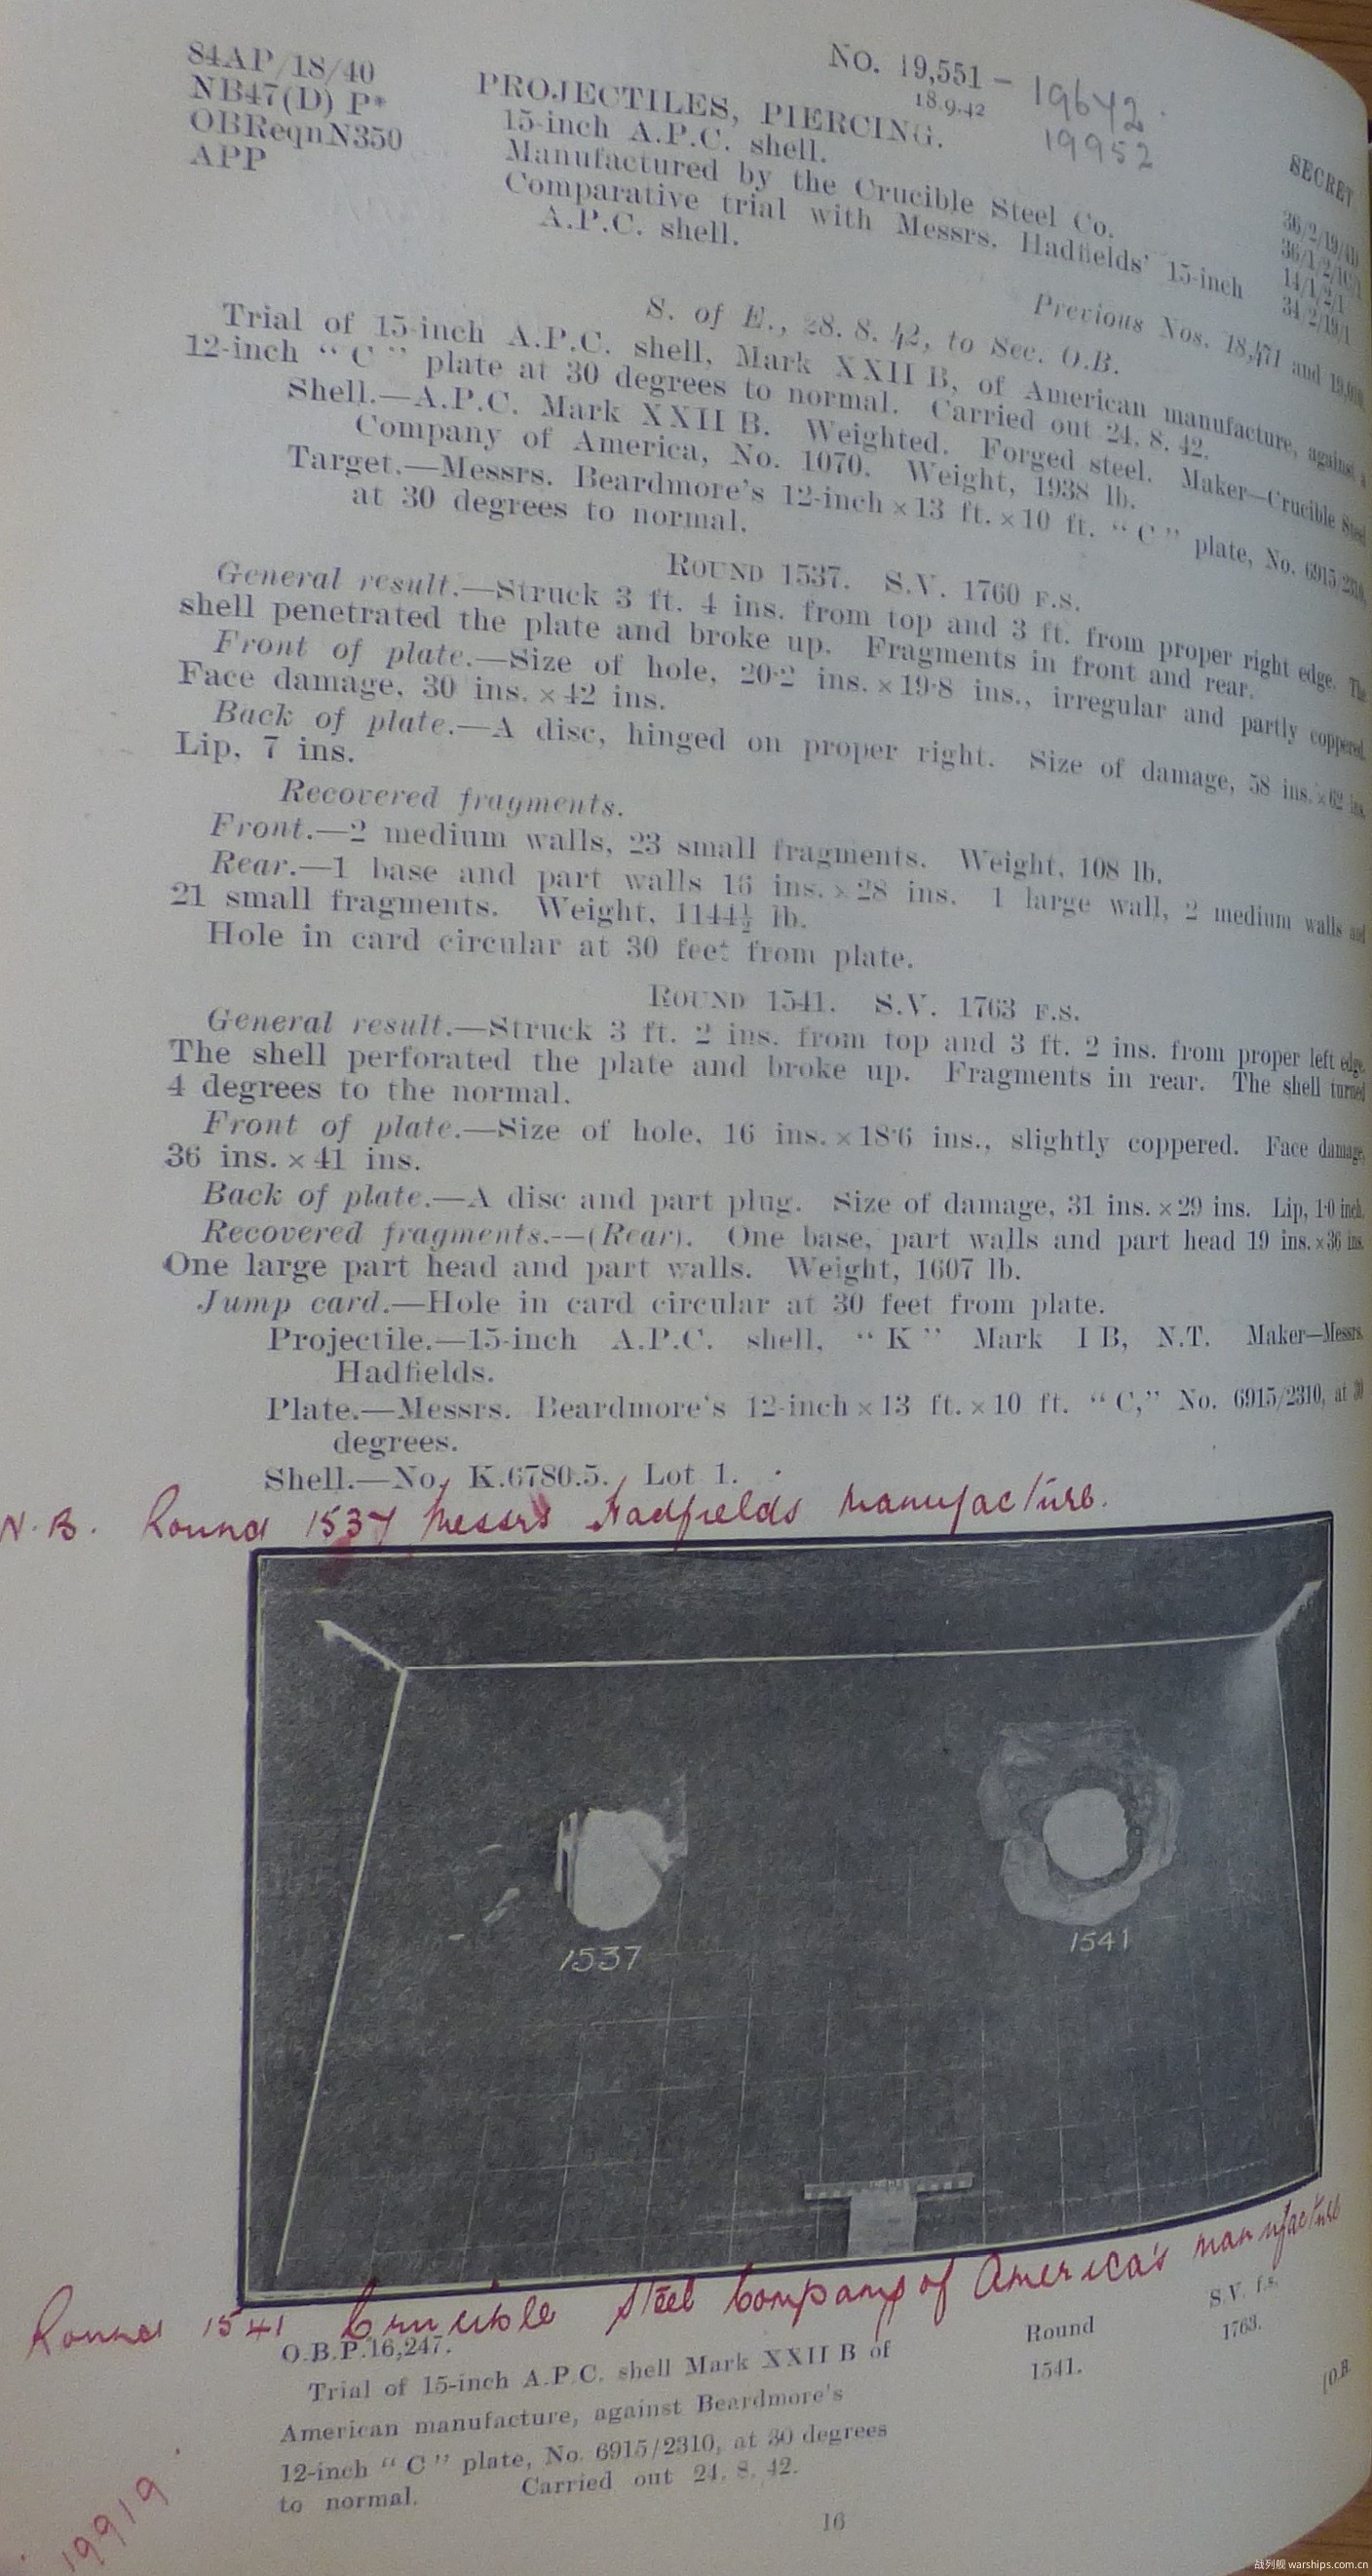 84AP/18/40
NB47(D) P*
OBReqnN350
APP
No. 19,551 – 19642
18.9.42
19952
PROJECTILES, PIERCING.
15-inch A.P.C. shell.
Manufactured by the Crucible Steel Co.
Comparative trial with Messrs. Hadfields' 15-inch
A.P.C. shell.
SECRET
36/2/19/4D
14/1/2/1
34/2/19/1
Previous Nos. 18,471 and
S. of E., 28. 8. 42, to Sec. O.B.
Trial of 15-inch A.P.C. shell, Mark XXII B, of American manufacture, against a
12-inch “C” plate at 30 degrees to normal. Carried out 24. 8. 42.
Shell.—A.P.C. Mark XXII B. Weighted. Forged steel. Maker—Crucible Steel
Company of America, No. 1070. Weight, 1938 lb.
Target.—Messrs. Beardmore's 12-inch × 13 ft. × 10 ft. “C” plate, No. 6915/2310,
at 30 degrees to normal.
ROUND 1537. S.V. 1760 F.S.
General result.—Struck 3 ft. 4 ins. from top and 3 ft. from proper right edge. The
shell penetrated the plate and broke up. Fragments in front and rear.
Front of plate.—Size of hole, 20·2 ins. × 19·8 ins., irregular and partly coppered.
Face damage, 30 ins. × 42 ins.
Back of plate.—A disc, hinged on proper right. Size of damage, 58 ins. × 62 ins.
Lip, 7 ins.
Recovered fragments.
Front.—2 medium walls, 23 small fragments. Weight, 108 lb.
Rear.—1 base and part walls 16 ins. × 28 ins. 1 large wall, 2 medium walls and
21 small fragments. Weight, 1144½ lb.
Hole in card circular at 30 feet from plate.
ROUND 1541. S.V. 1763 F.S.
General result.—Struck 3 ft. 2 ins. from top and 3 ft. 2 ins. from proper left edge.
The shell perforated the plate and broke up. Fragments in rear. The shell turned
4 degrees to the normal.
Front of plate.—Size of hole, 16 ins. × 18·6 ins., slightly coppered. Face damage,
36 ins. × 41 ins.
Back of plate.—A disc and part plug. Size of damage, 31 ins. × 29 ins. Lip, 1·0 inch.
Recovered fragments.--(Rear). One base, part walls and part head 19 ins. × 36 ins.
One large part head and part walls. Weight, 1607 lb.
Jump card.—Hole in card circular at 30 feet from plate.
Projectile.—15-inch A.P.C. shell, “K” Mark I B, N.T. Maker—Messrs.
Hadfields.
Plate.—Messrs. Beardmore's 12-inch × 13 ft. × 10 ft. “C,” No. 6915/2310, at 30
degrees.
Shell.—No. K.6780.5. Lot 1.
N.B. Round 1537 Messrs Hadfields manufacture.
1537
1541
Round 1541 Crucible Steel Company of America's manufacture
O.B.P.16,247.
Trial of 15-inch A.P.C. shell Mark XXII B of
American manufacture, against Beardmore's
12-inch “C” plate, No. 6915/2310, at 30 degrees
to normal. Carried out 24. 8. 42.
Round
1541.
S.V. f.s.
1763.
(O.B.
16
19919
战列舰 warships.com.cn